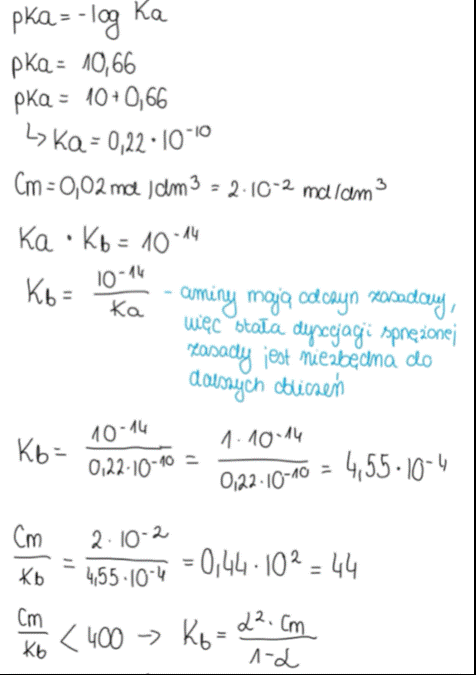 pKa = -log Ka
pKa = 10,66
pKa = 10+0,66
↳ Ka = 0,22 · 10⁻¹⁰
Cm = 0,02 mol/dm³ = 2·10⁻² mol/dm³
Ka · Kb = 10⁻¹⁴
Kb = 10⁻¹⁴ / Ka - aminy mają odczyn zasadowy,
więc stała dysocjacji sprężonej
zasady jest niezbędna do
dalszych obliczeń
Kb = 10⁻¹⁴ / 0,22·10⁻¹⁰ = 1·10⁻¹⁴ / 0,22·10⁻¹⁰ = 4,55·10⁻⁴
Cm / Kb = 2·10⁻² / 4,55·10⁻⁴ = 0,44·10² = 44
Cm / Kb < 400 → Kb = α²·Cm / 1-α